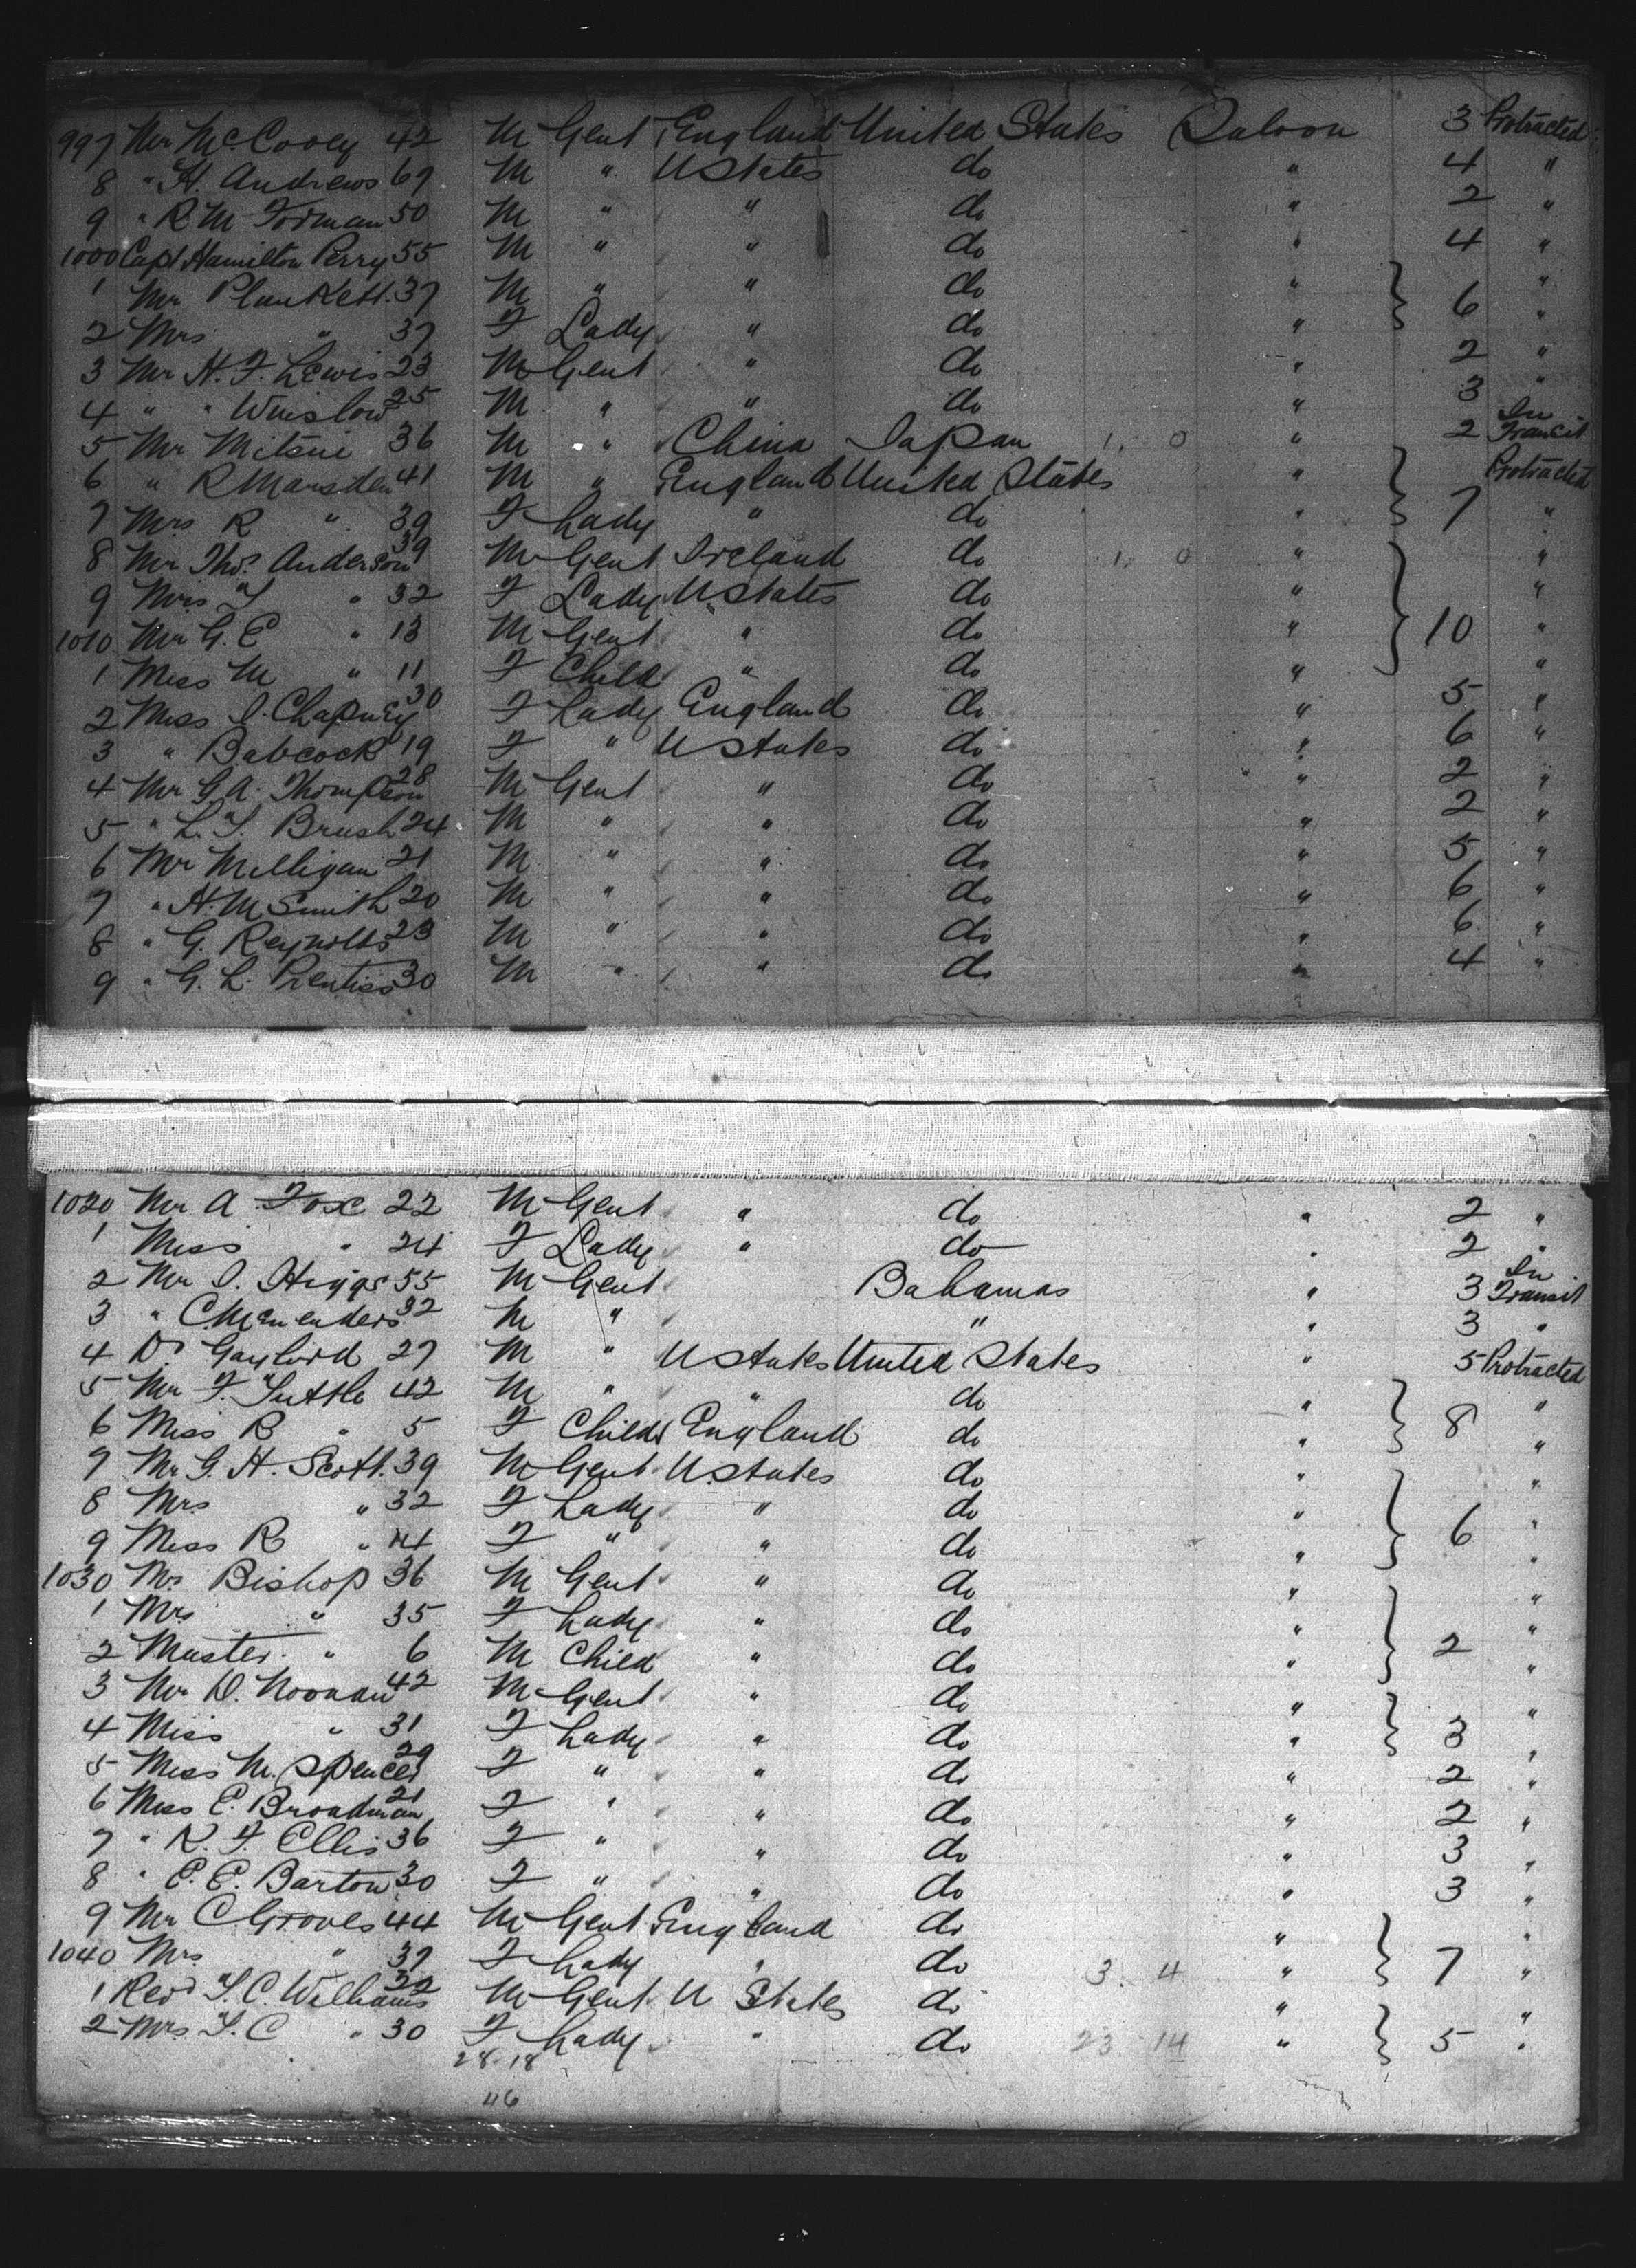 997 Mr McCooey 42 M Gent England United States Saloon 3 Protracted
8 " H. Andrews 67 M " U States do " 4 "
9 " R M Forman 50 M " " do " 2 "
1000 Capt Hamilton Perry 55 M " " do " 4 "
1 Mr Plunkett 37 M " " do " } 6 "
2 Mrs " 37 F Lady " do " "
3 Mr H. F. Lewis 23 M Gent " do " 2 "
4 " " Winslow 25 M " " do " 3 "
5 Mr Mitsui 36 M " China Japan 1. 0 " 2 In Transit
6 " R Marsden 41 M " England United States " } 7 Protracted
7 Mrs R " 39 F Lady " do " "
8 Mr Thos. Anderson 39 M Gent Ireland do 1. 0 " } 10 "
9 Mrs T " 32 F Lady U States do " "
1010 Mr G. E " 13 M Gent " do " "
1 Miss M " 11 F Child " do " "
2 Miss I. Chapney 30 F Lady England do " 5 "
3 " Babcock 19 F " U States do " 6 "
4 Mr G. A. Thompson 28 M Gent " do " 2 "
5 " L. T. Brush 24 M " " do " 2 "
6 Mr Milligan 21 M " " do " 5 "
7 " H. M Smith 20 M " " do " 6 "
8 " G. Reynolds 23 M " " do " 6 "
9 " G. L. Prentiss 30 M " " do " 4 "
1020 Mr A Fox 22 M Gent " do " 2 "
1 Miss " 24 F Lady " do " 2 "
2 Mr I. Higgs 55 M Gent Bahamas " 3 In Transit
3 " 32 M " " " 3 "
4 Dr Gaylord 27 M " U States United States " 5 Protracted
5 Mr F. Tuttle 42 M " " do " } 8 "
6 Miss R " 5 F Child England do " "
7 Mr G. H. Scott 39 M Gent U States do " } 6 "
8 Mrs " 32 F Lady " do " "
9 Miss R " 14 F " " do " "
1030 Mr Bishop 36 M Gent " do " } 2 "
1 Mrs " 35 F Lady " do " "
2 Master " 6 M Child " do " "
3 Mr D. Noonan 42 M Gent " do " } 3 "
4 Miss " 31 F Lady " do " "
5 Miss M. Spencer 29 F " " do " 2 "
6 Miss E. Broadman 21 F " " do " 2 "
7 " R. F. Ellis 36 F " " do " 3 "
8 " E. E. Barton 30 F " " do " 3 "
9 Mr C Groves 44 M Gent England do " } 7 "
1040 Mrs " 37 F Lady " do 3. 4 " "
1 Revd T. C. Williams 32 M Gent U States do " } 5 "
2 Mrs T. C " 30 F Lady " do 23 14 " "
28-18
46